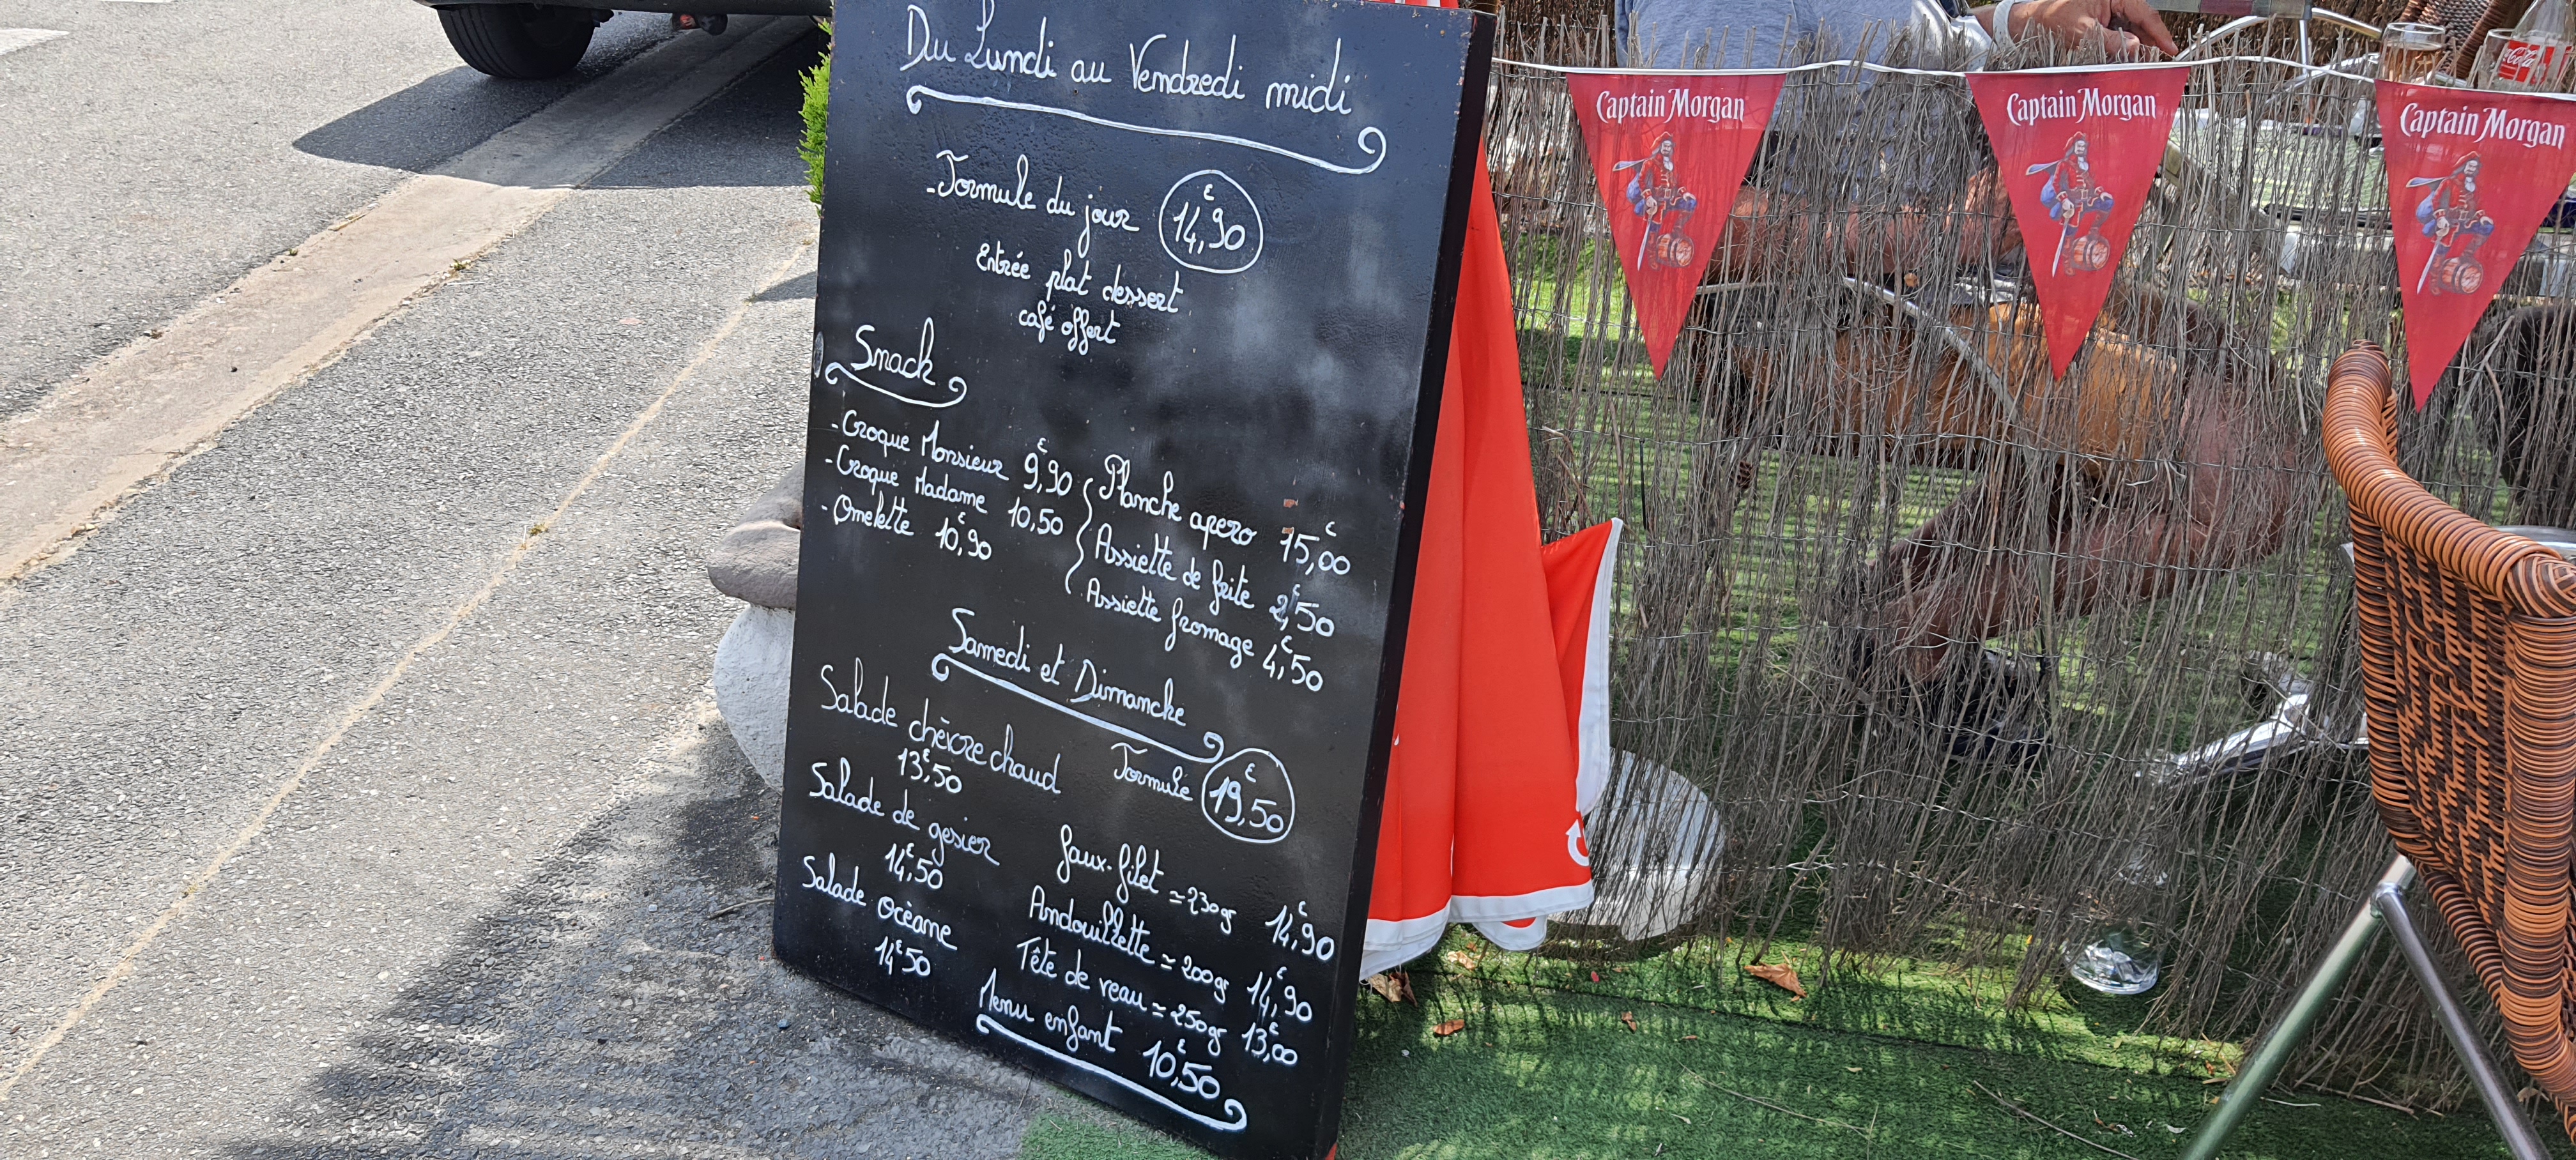 Du Lundi au Vendredi midi
- Formule du jour 14,90€
Entrée plat dessert
café offert
Snack
- Croque Monsieur 9,90€
- Croque Madame 10,50
- Omelette 10,90€
Planche apero 15,00€
Assiette de frite 2,50€
Assiette fromage 4,50€
Samedi et Dimanche
Salade chèvre chaud
13€50
Salade de gesier
14€,50
Salade océane
14€50
Formule 19,50€
faux-filet ≃ 230gr 14,90€
Andouillette ≃ 200gr 14,90€
Tête de veau ≃ 250gr 13,00€
Menu enfant 10€,50
Captain Morgan
Captain Morgan
Captain Morgan